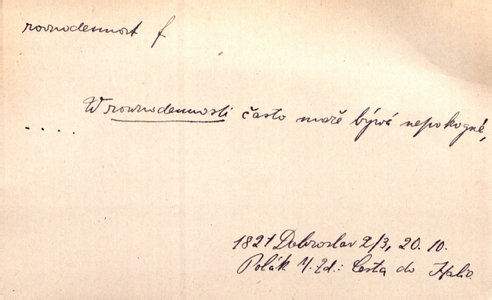 rovnodennost f
W rovnodennosti často moře býwá nepokogné,
. . . .
1821 Dobroslav 2/3, 20. 10.
Polák M. Zd.: Cesta do Italie